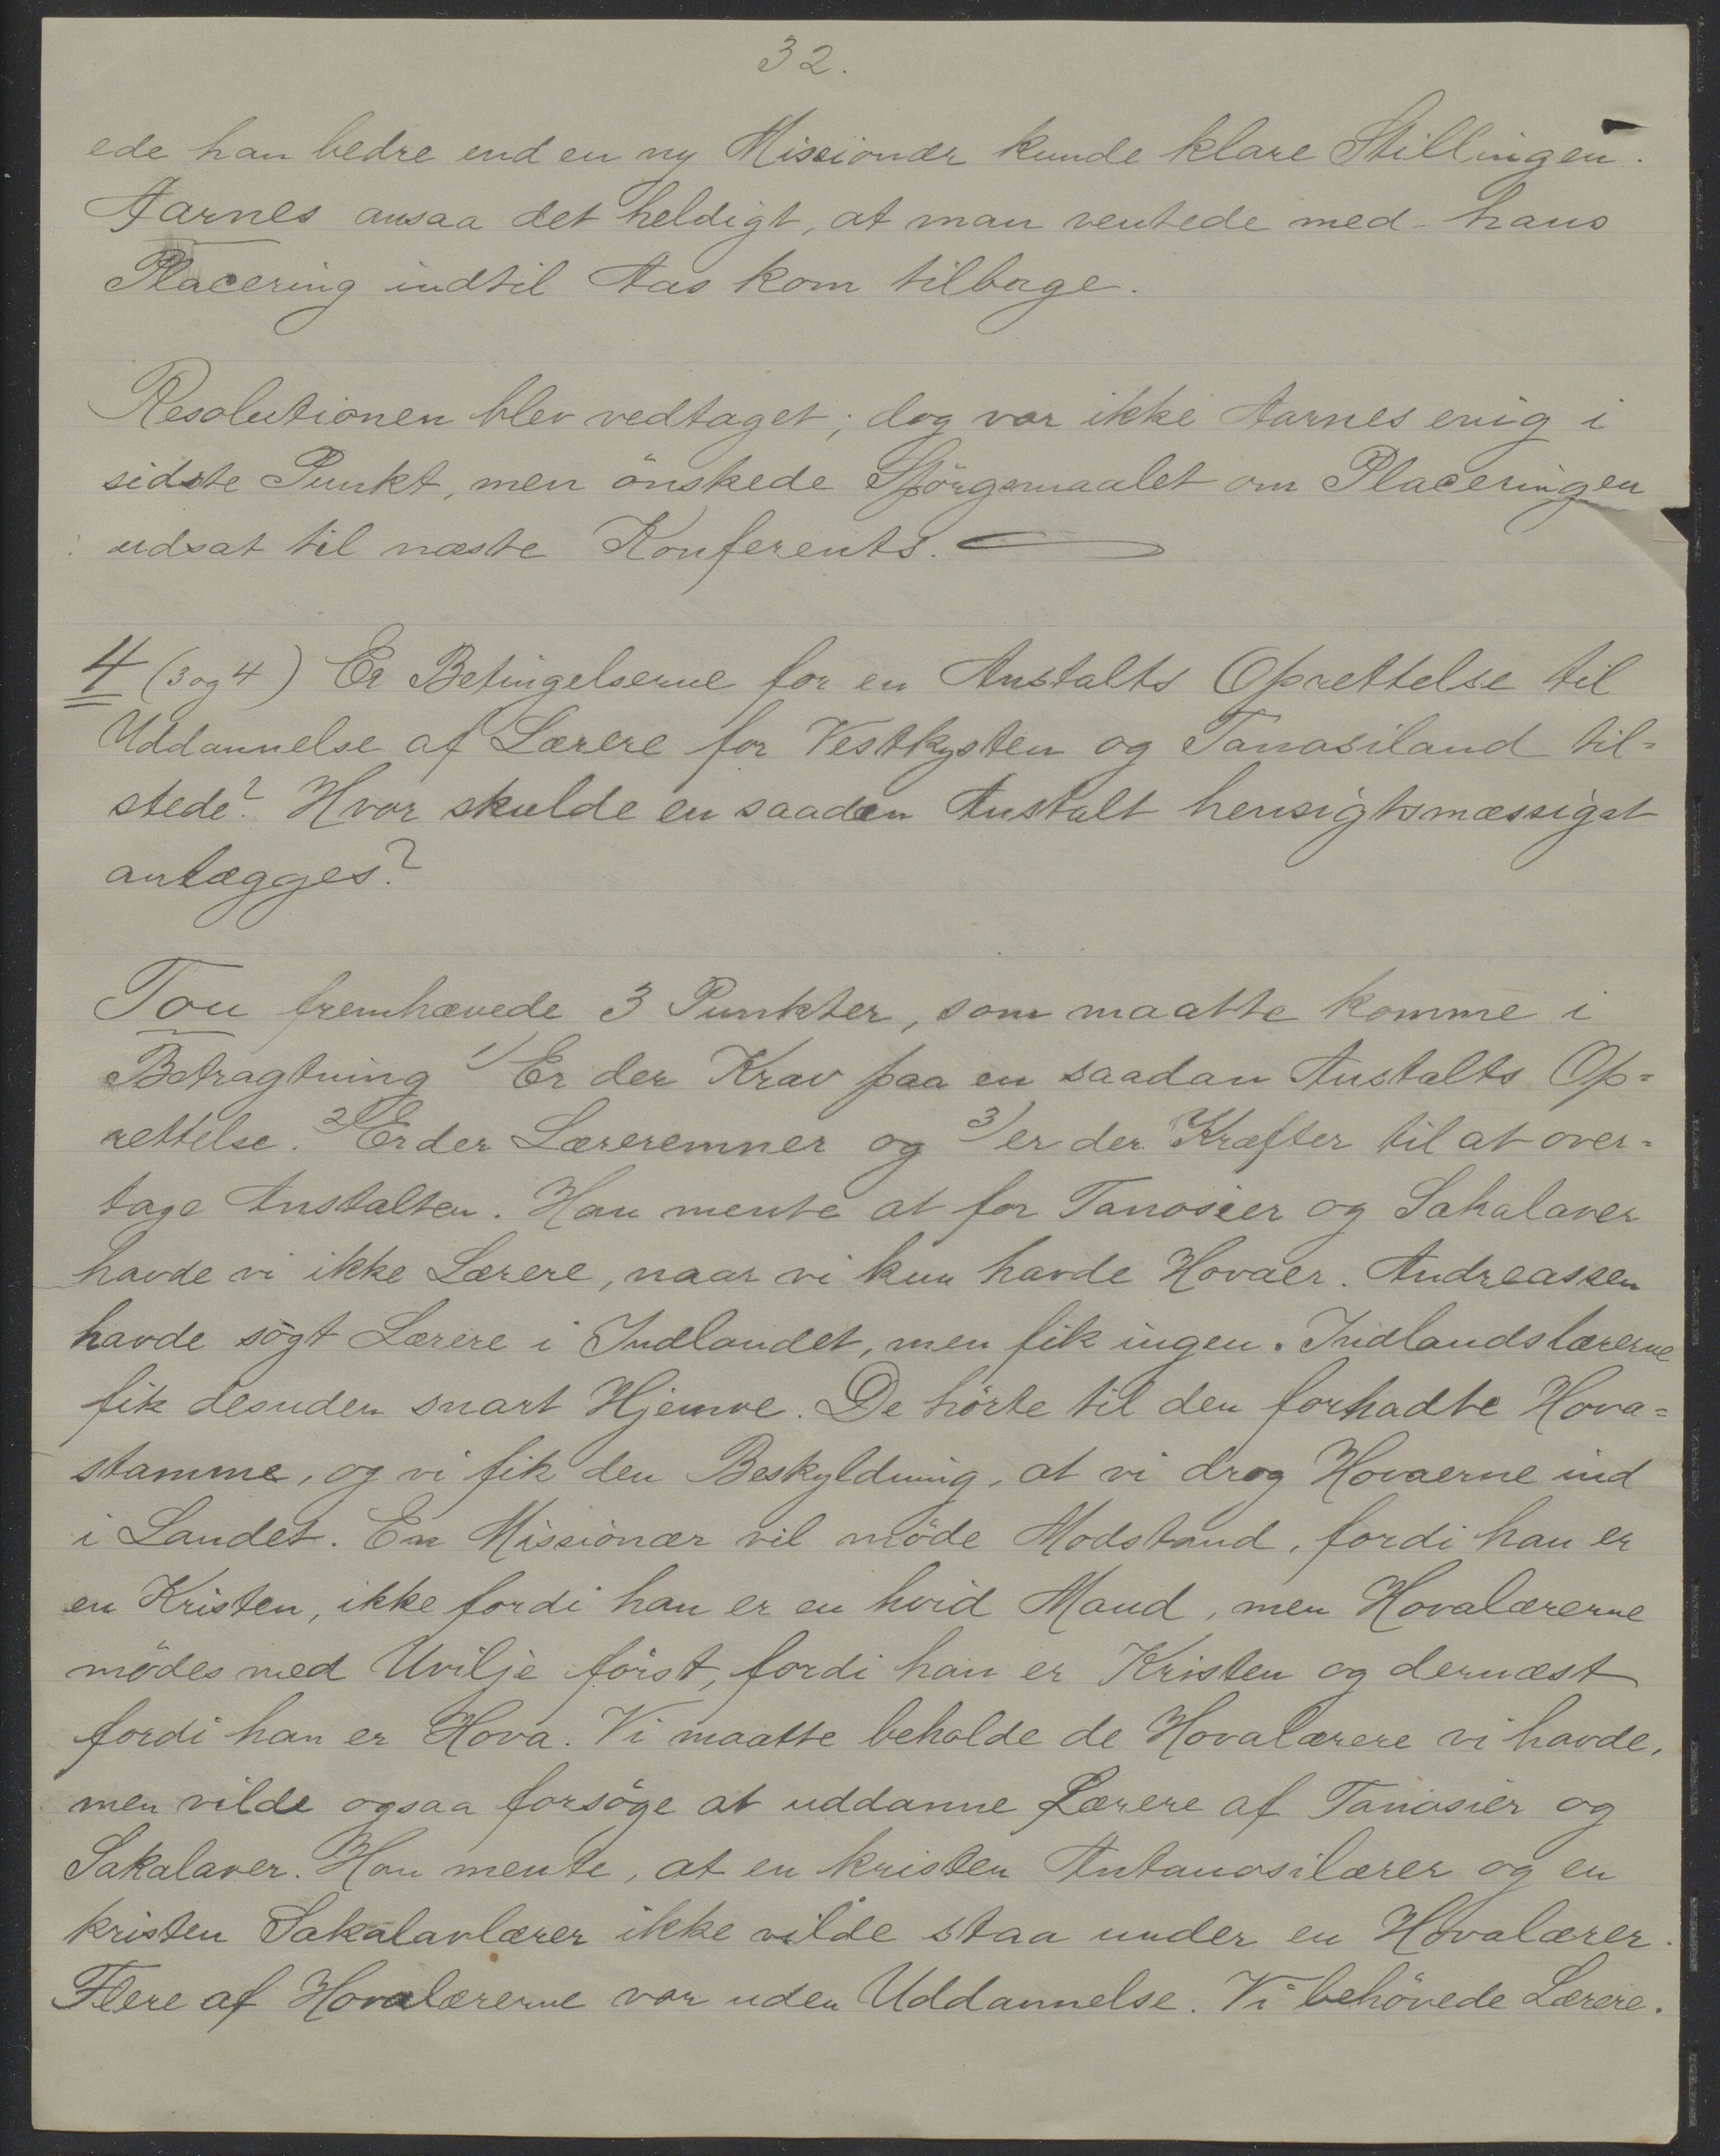 32.
ede han bedre end en ny Missionær kunde klare Stillingen.
Aarnes ansaa det heldigt, at man ventede med hans
Placering indtil Aas kom tilbage.
Resolutionen blev vedtaget; dog var ikke Aarnes enig i
sidste Punkt, men önskede Spörgsmaalet om Placeringen
udsat til næste Konferents.
4 (3 og 4) Er Betingelserne for en Anstalts Oprettelse til
Uddannelse af Lærere for Vestkysten og Tanosiland til=
stede? Hvor skulde en saadan Anstalt hensigtsmæssigst
anlægges?
Tou fremhævede 3 Punkter, som maatte komme i
Betragtning 1) Er der Krav paa en saadan Anstalts Op=
rettelse. 2) Er der Læreremner og 3) er der Kræfter til at over=
tage Anstalten. Han mente at for Tanosier og Sakalaver
havde vi ikke Lærere, naar vi kun havde Hovaer. Andreassen
havde sögt Lærere i Indlandet, men fik ingen. Indlandslærerne
fik desuden snart Hjemve. De hörte til den forhadte Hova=
stamme, og vi fik den Beskyldning, at vi drog Hovaerne ind
i Landet. En Missionær vil möde Modstand, fordi han er
en Kristen, ikke fordi han er en hvid Mand, men Hovalærerne
mödes med Uvilje först, fordi han er Kristen og dernæst
fordi han er Hova. Vi maatte beholde de Hovalærere vi havde,
men vilde ogsaa forsöge at uddanne Lærere af Tanosier og
Sakalaver. Han mente, at en kristen Antanosilærer og en
kristen Sakalavlærer ikke vilde staa under en Hovalærer.
Flere af Hovalærerne var uden Uddannelse. Vi behövede Lærere.